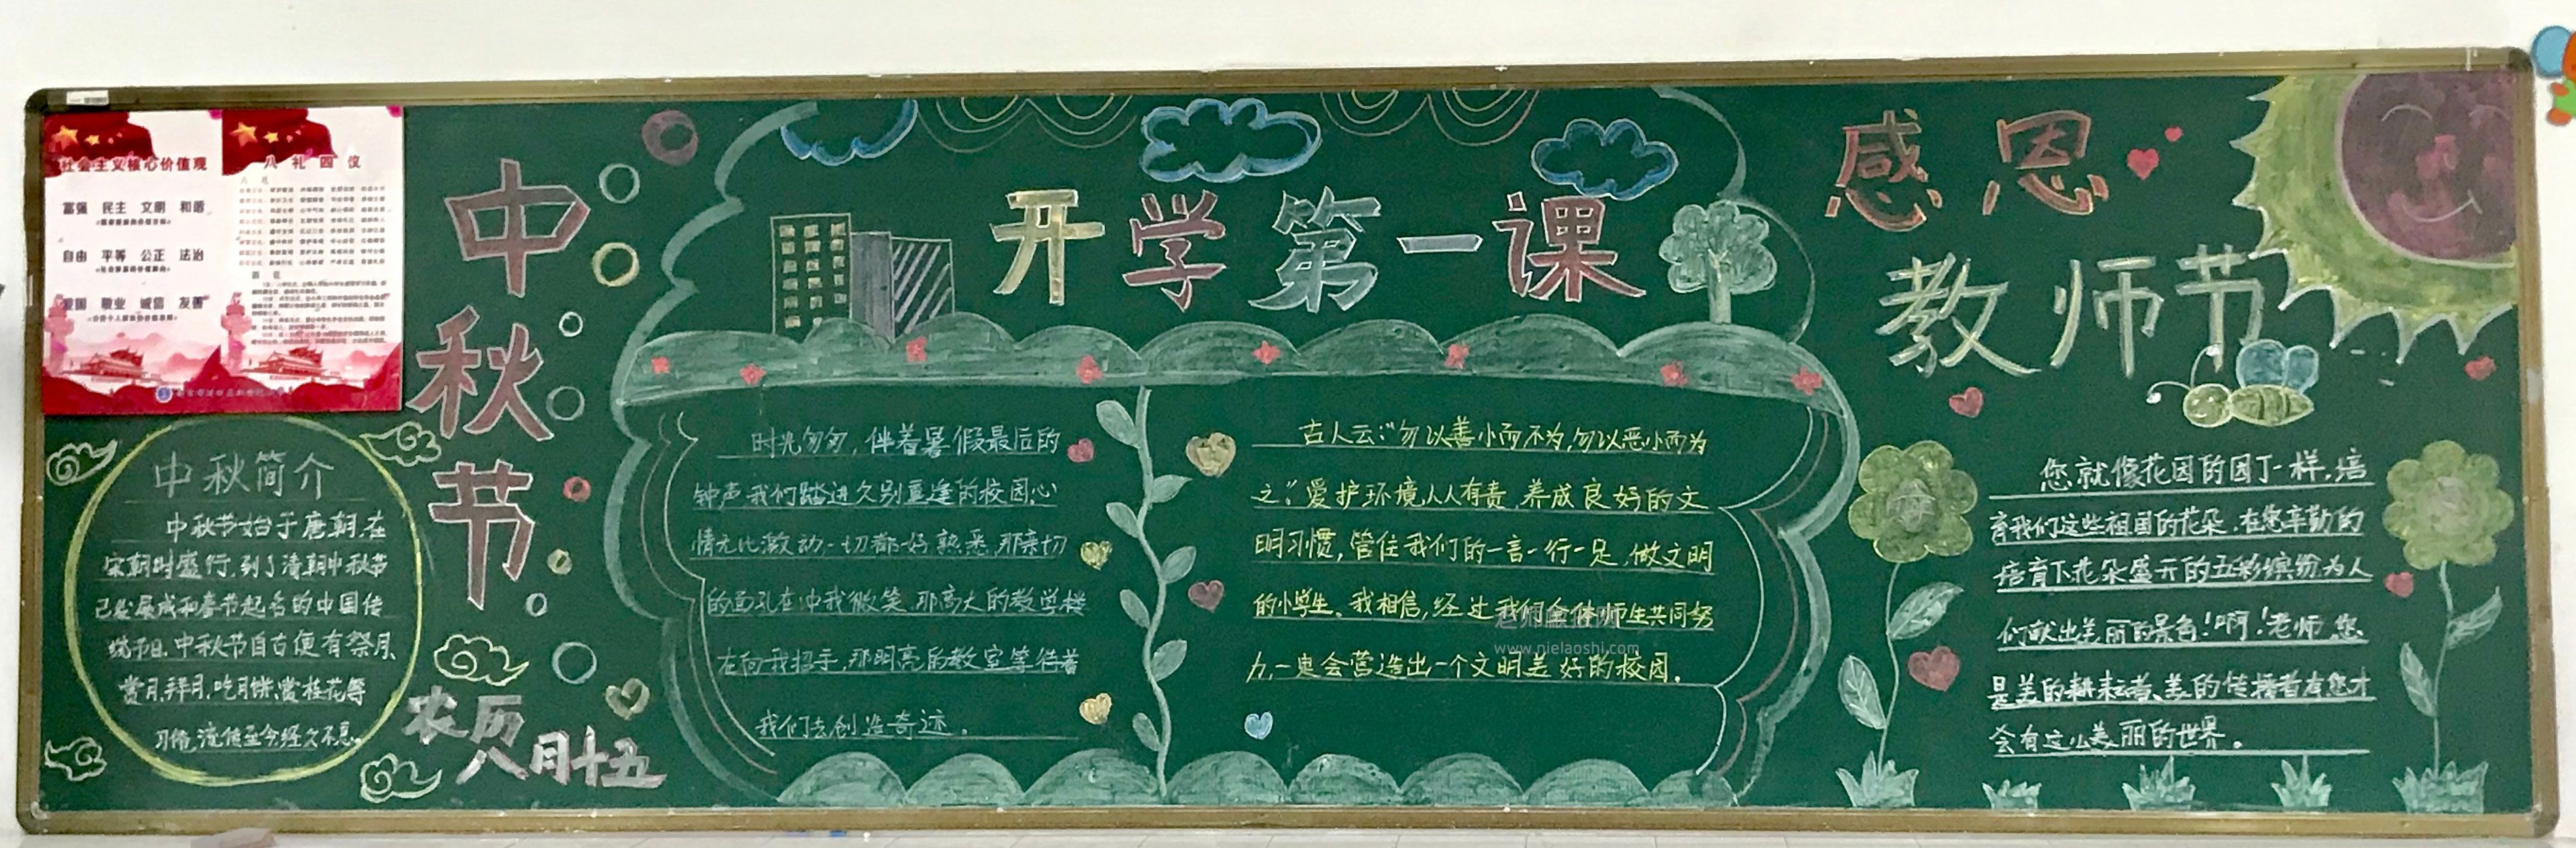 社会主义核心价值观
富强 民主 文明 和谐
自由 平等 公正 法治
爱国 敬业 诚信 友善
八礼四仪
中秋节
农历
八月十五
中秋简介
中秋节始于唐朝,在
宋朝时盛行,到了清朝中秋节
已发展成和春节起名的中国传
统节日,中秋节自古便有祭月、
赏月、拜月、吃月饼、赏桂花等
习俗,流传至今经久不息。
开学第一课
时光匆匆，伴着暑假最后的
钟声我们踏进久别重逢的校园,心
情无比激动一切都好熟悉,那亲切
的面孔在冲我微笑,那高大的教学楼
在向我招手,那明亮的教室等待着
我们去创造奇迹。
古人云:“勿以善小而不为,勿以恶小而为
之”爱护环境人人有责,养成良好的文
明习惯,管住我们的一言一行一足,做文明
的小学生。我相信,经过我们全体师生共同努
力,一定会营造出一个文明美好的校园。
www.nielaoshi.com
感恩
教师节
您就像花园的园丁一样,培
育我们这些祖国的花朵,在您辛勤的
培育下花朵盛开的五彩缤纷为人
们献出美丽的景色!啊!老师,您
是美的耕耘者、美的传播者有您才
会有这么美丽的世界。